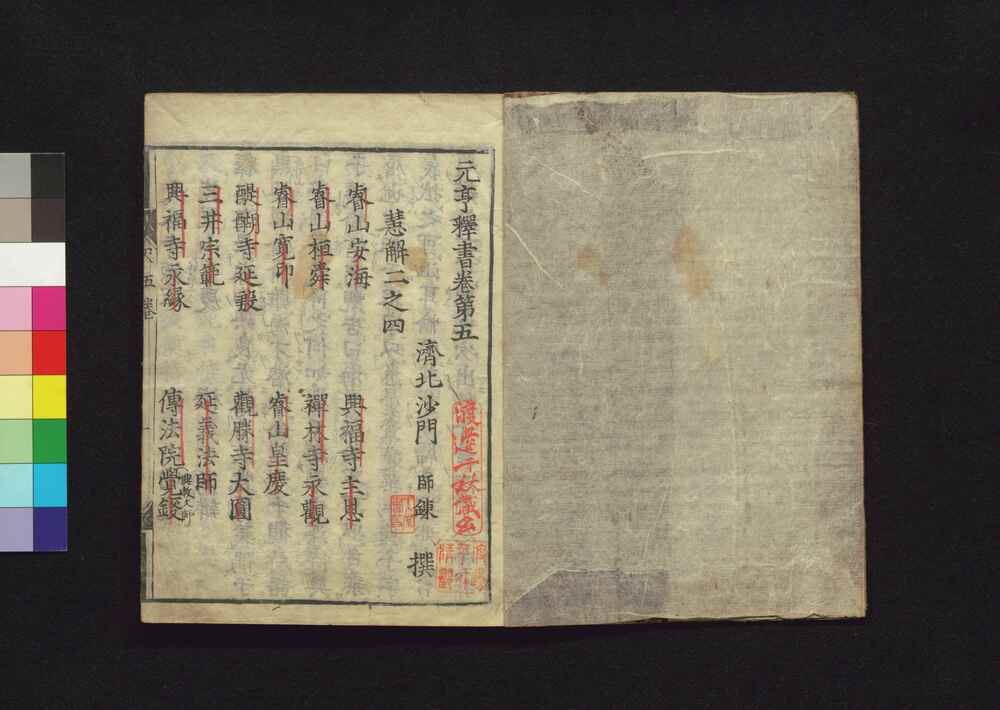 元亨釋書卷第五
濟北沙門 師錬 撰
慧解二之四
睿山安海 興福寺主恩
睿山桓舜 禪林寺永觀
睿山寛印 睿山皇慶
醍醐寺延殷 觀勝寺大圓
三井宗範 延義法師
興福寺永縁 傳法院覺鑁 興教大師